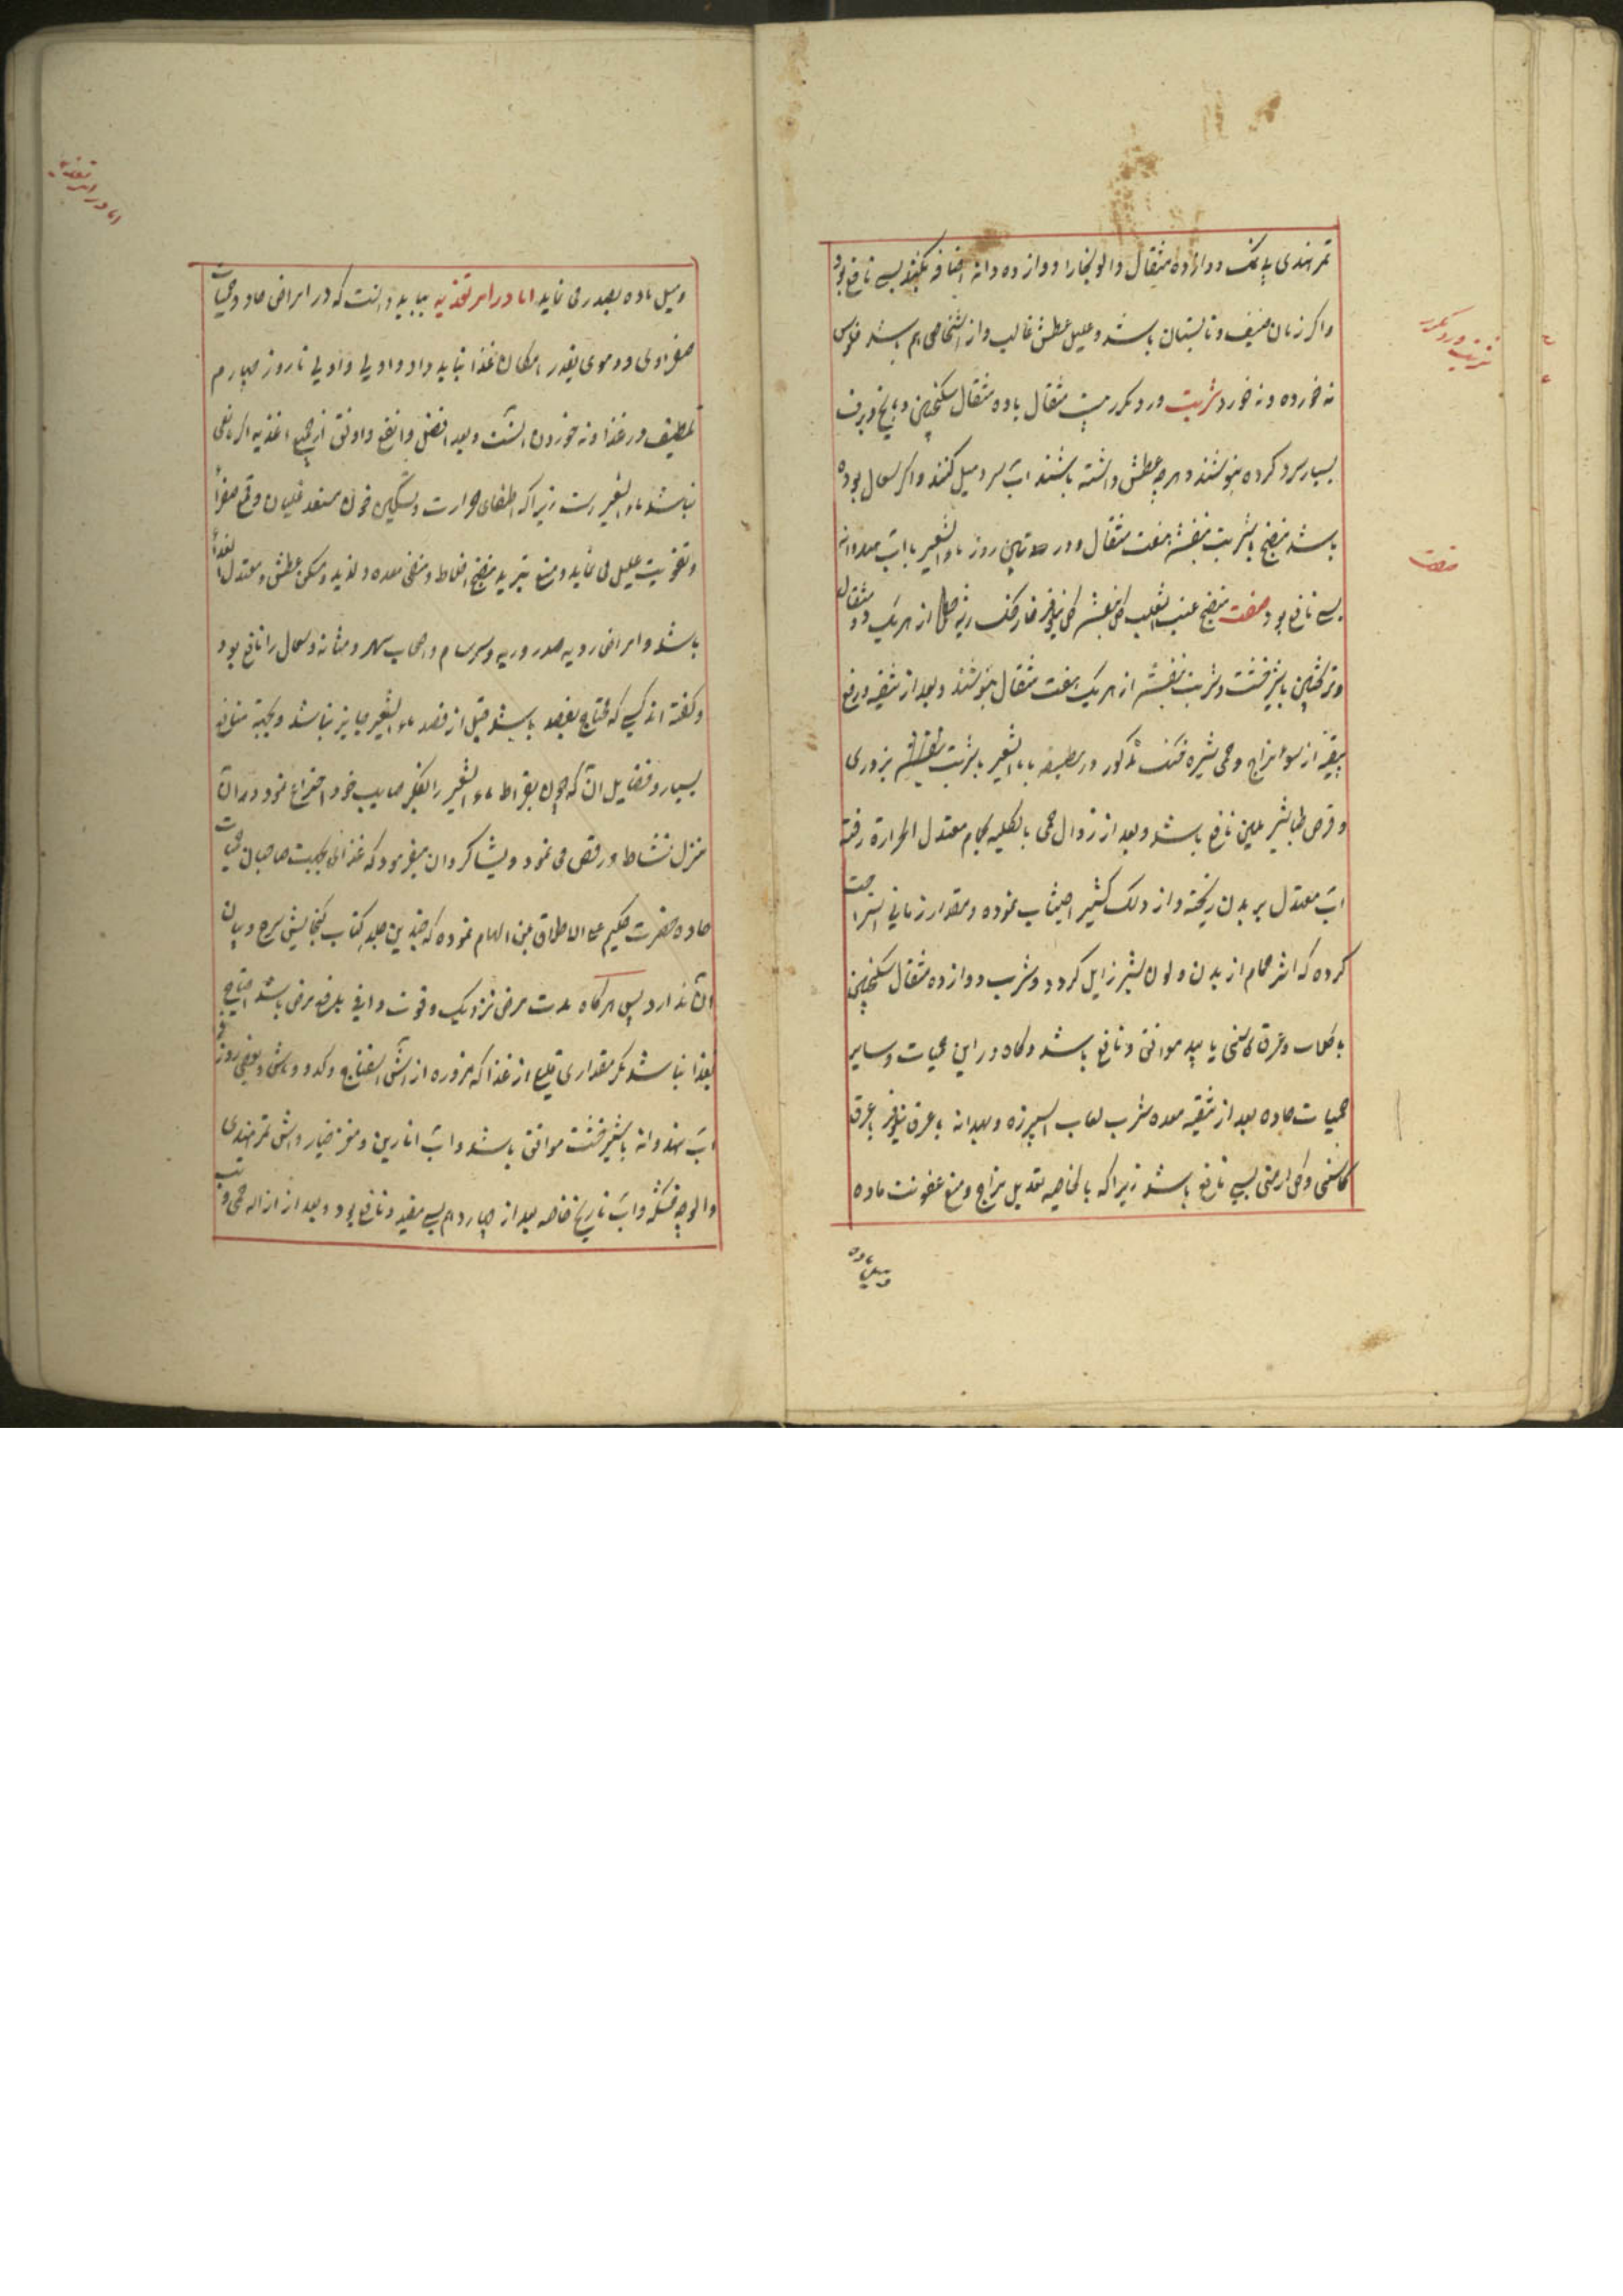 تمر هندی پاک دوازده مثقال و الو بخارا دوازده دانه اضافه کنند بسی نافع بود
و اکر زمان صیف و تابستان باشد و علیل عطش غالب و از اشخاصی هم باشد فلوس
نه خورده و نه خورد شربت ورد مکرر بیست مثقال با ده مثقال سکنجبین و با یخ و برف
بسیار سرد کرده بنوشند و هرچه عطش داشته باشند اب سرد میل کنند و اکر سعال بوده
باشد منضج با شربت بنفشه هفت مثقال و در روز ماء الشعیر با اب هندوانه
بسی نافع بود صفت منضج عنب الثعلب کل بنفشه کل نیلوفر خارخسک از هر یک دو مثقال
و ترنجبین با شیرخشت و شربت بنفشه از هر یک هفت مثقال بنوشند و بعد از تنقیه و رفع
بقیه از سوء مزاج و حمی شیره خنک مذکور در مطبقه با ماء الشعیر با شربت بزوری
و قرص طباشیر ملین نافع باشد و بعد از زوال حمی بالکلیه بحمام معتدل الحرارة رفته
اب معتدل بر بدن ریخته و از دلک کثیر اجتناب نموده و مقدار زمانی استراحت
کرده که اثر حمام از بدن و لون بشر زایل کردد و شرب دوازده مثقال سکنجبین
با کلاب و عرق کاسنی یا بید موافق و نافع باشد و کاه در این حمیات و سایر
حمیات حاده بعد از تنقیه معده شرب لعاب اسپرزه و بهدانه با عرق نیلوفر با عرق
کاسنی و کل ارمنی بسی نافع باشد زیرا که بالخاصیه تعدیل مزاج و منع عفونت ماده
و میل ماده
شربت ورد مکرر
صفت
و میل ماده بصدر می نماید اما در امر تغذیه بباید دانست که در امراض حاد و حمیات
صفراوی و دموی بقدر امکان غذا نباید داد و اولی و اولی تا روز چهارم
تلطیف در غذا و نه خوردن انست و بعد افضل و انفع و اوفق از جمیع اغذیه اکر مانعی
نباشد ماء الشعیر است زیرا که اطفای حرارت و تسکین خون مستعد غلیان و قمع صفرا
و تقویت علیل می نماید و منع تبرید منضج اخلاط و منقی معده و لذیذ و مسکن عطش و معتدل الغذاء
باشد و امراض ردیه صدر و ریه و سرسام و اصحاب سهر و مثانه و سعال را نافع بود
و کفته اند کسی که محتاج بفصد باشد قبل از فصد ماء الشعیر جایز نباشد و بجهة منافع
بسیار و فضایل ان که چون بقراط ماء الشعیر را بفکر صایب خود اختراع نمود در ان
منزل نشاط و رقص می نمود و بشاکردان میفرمود که غذائی بجهت صاحبان حمیات
حاده حضرت حکیم علی الاطلاق بمن الهام نموده که چندین جلد کتاب کنجایش شرح و بیان
ان ندارد پس هرکاه مدت مرض نزدیک و قوت وافی بدفع مرض باشد احتیاج
بغذا نباشد مکر مقداری قلیل از غذا که مزوره از اش اسفناج و کدو و ماش و بعضی روز
اب هندوانه با شیرخشت موافق باشد و اب انارین و مغز خیار و اش تمر هندی
و الوچه خشکه و اب نارنج خاصه بعد از چهاردهم بسی مفید و نافع بود و بعد از ازاله حمی و تب
اما در امر تغذیه